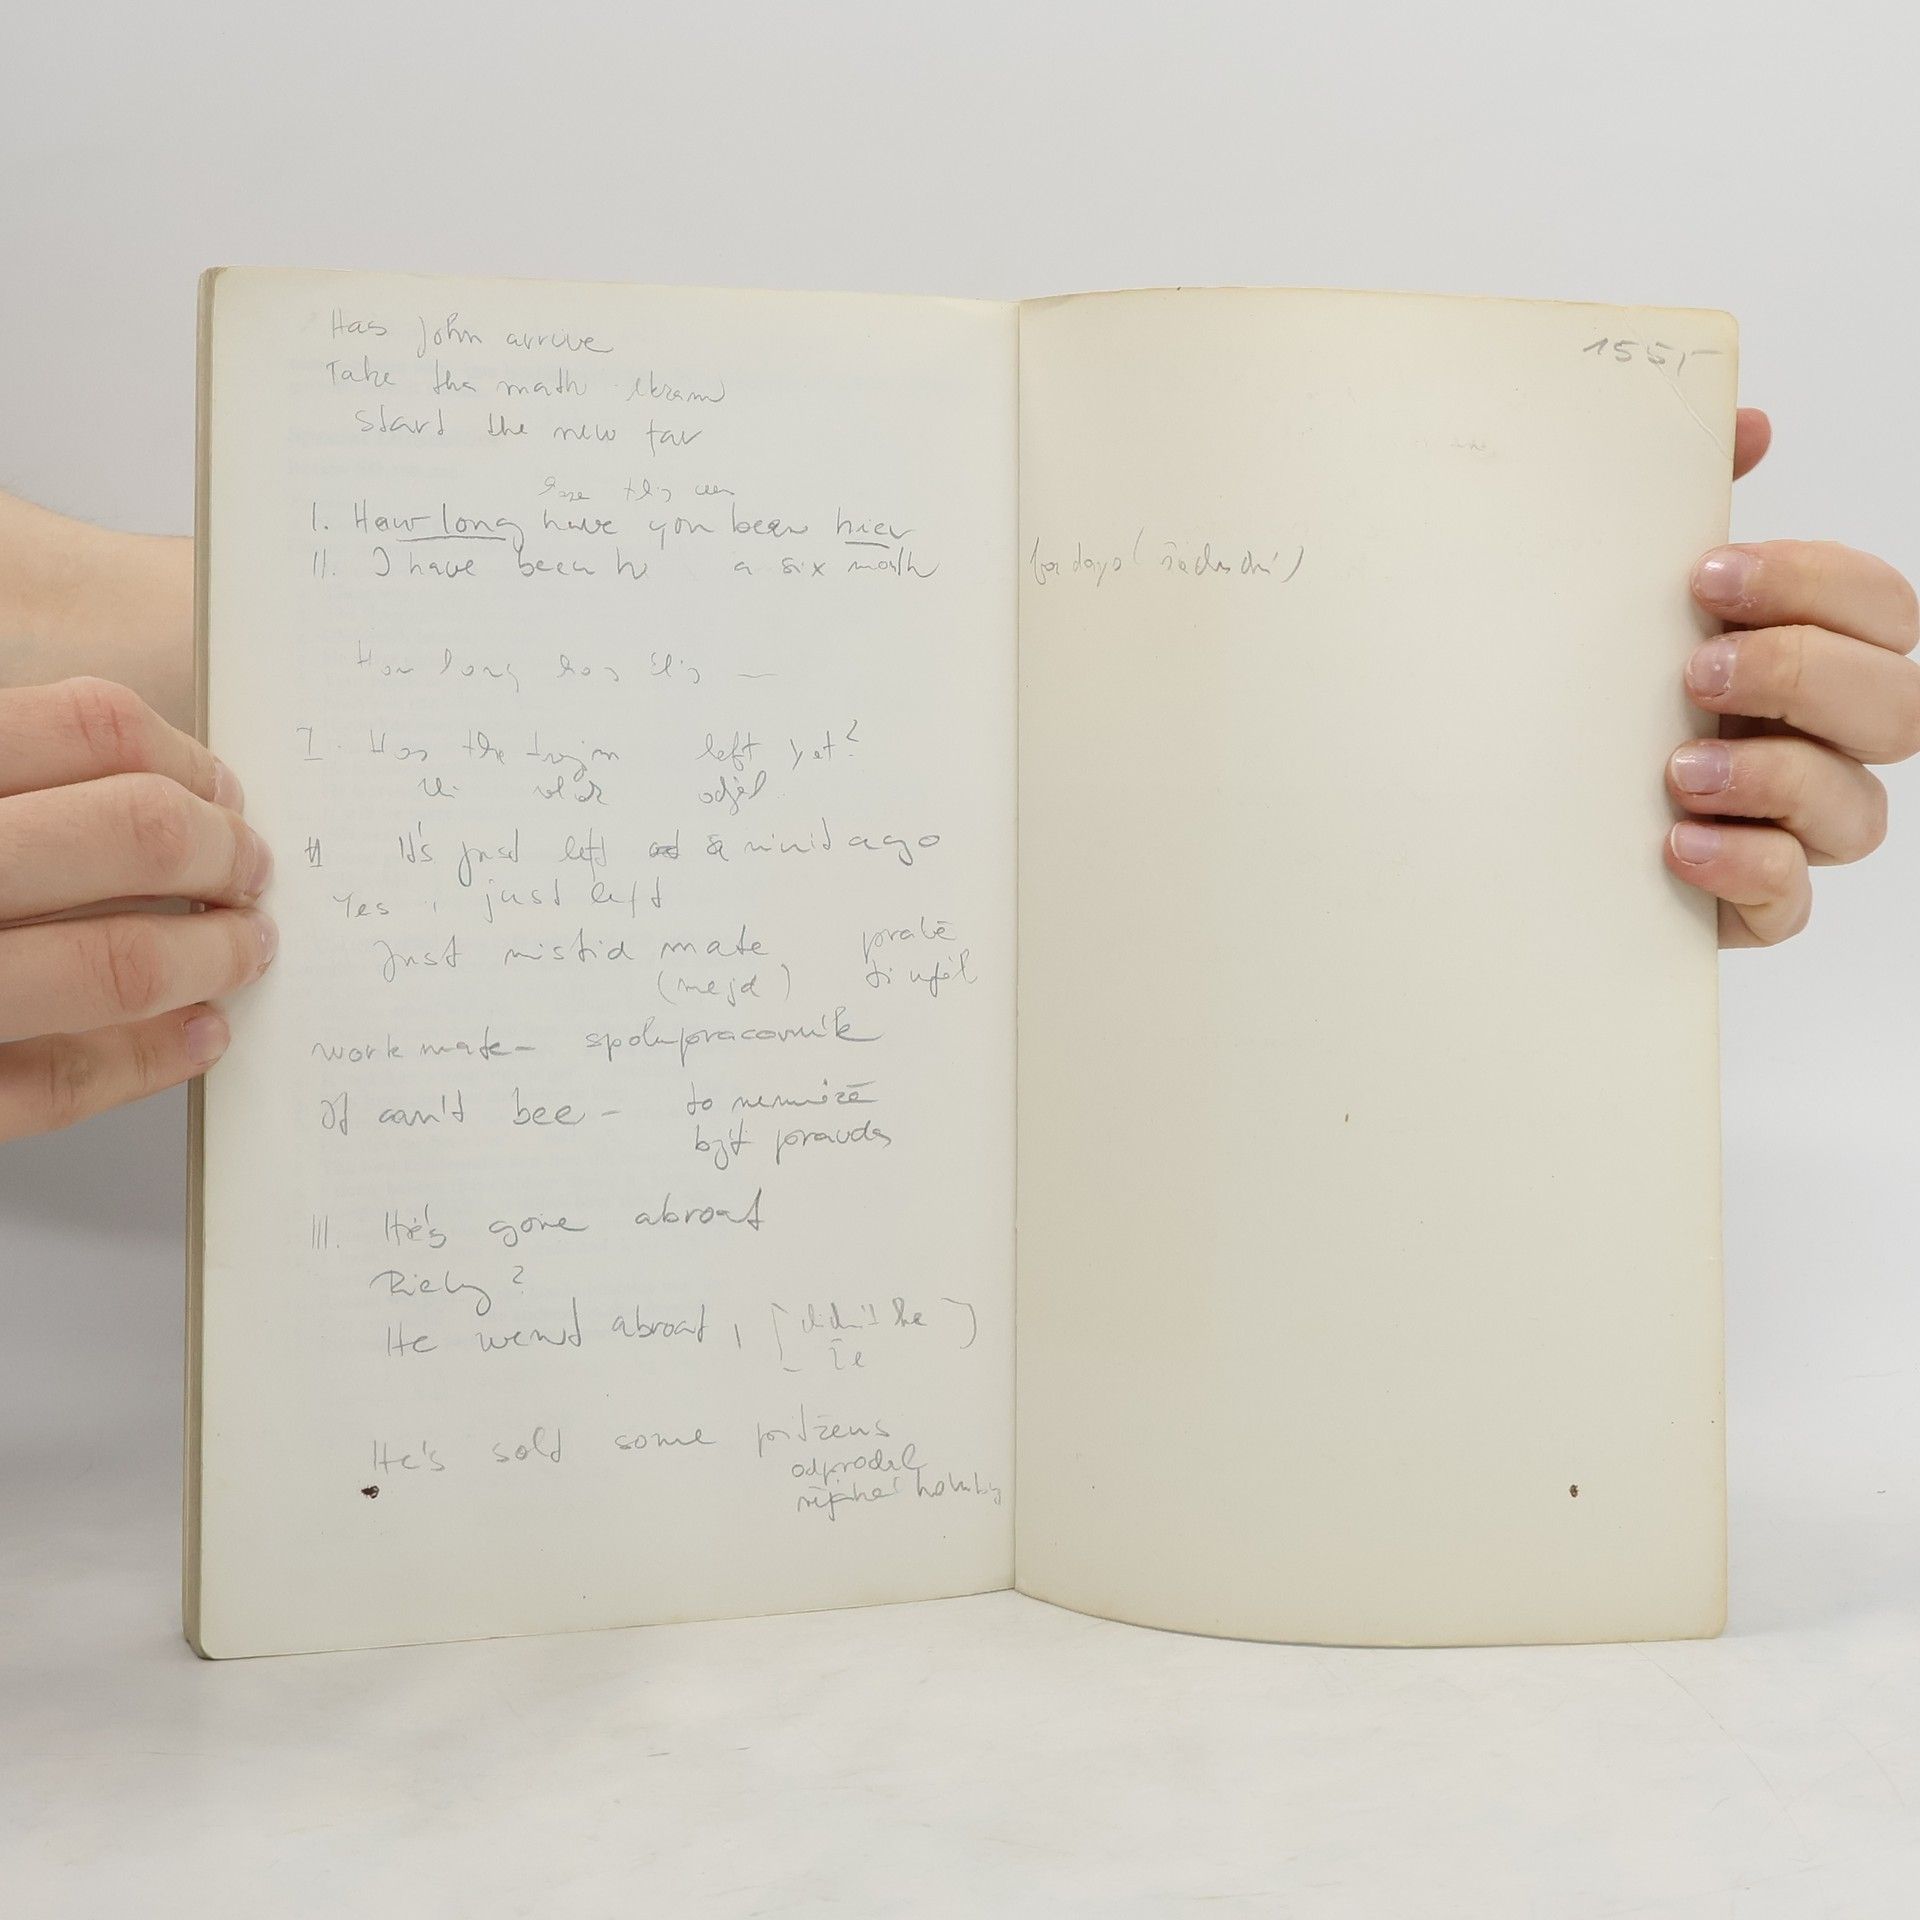 Has John arrive
Take the math
start the new
I. How long have you been hier
II. I have been h a six month
for days (
How long has this —
I. Has the trajn left yet?
vlak odjel
II It's just left a minit ago
Yes, just left
Just mistid mate právě
(mejd) ti ujel
work mate - spolupracovník
It can't bee - to nemůže
být pravda
III. He's gone abroat
Ricky?
He went abroat, [didn't he]
že
He's sold some pidžens
odprodal
nějaké holuby
155,-